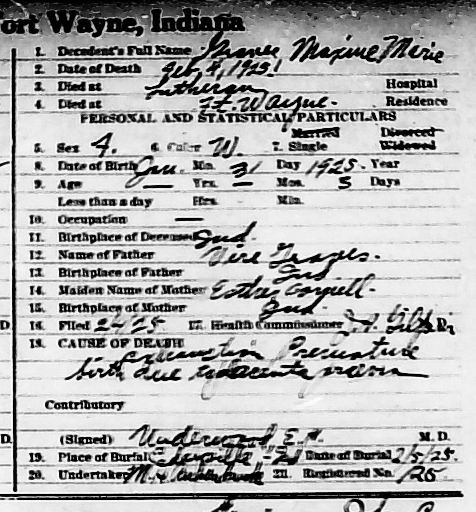 ort Wayne, Indiana
1. Decedent's Full Name Maxine Marie
2. Date of Death Feb. 1925
3. Died at Lutheran Hospital
4. Died at Ft. Wayne. Residence
PERSONAL AND STATISTICAL PARTICULARS
Married Divorced
5. Sex F. 6. Color W. 7. Single Widowed
8. Date of Birth Jan. Mo. 31 Day 1925. Year
9. Age — Yrs. — Mos. 3 Days
Less than a day Hrs. Min.
10. Occupation —
11. Birthplace of Deceased Ind.
12. Name of Father
13. Birthplace of Father Ind
14. Maiden Name of Mother Esther
15. Birthplace of Mother Ind.
D. 16. Filed 2 4 25 17. Health Commissioner
18. CAUSE OF DEATH
Premature
birth due
Contributory
D. (Signed) Underwood E. M. D.
19. Place of Burial Ind Date of Burial 2/5/25.
20. Undertaker 21. Registered No. 125